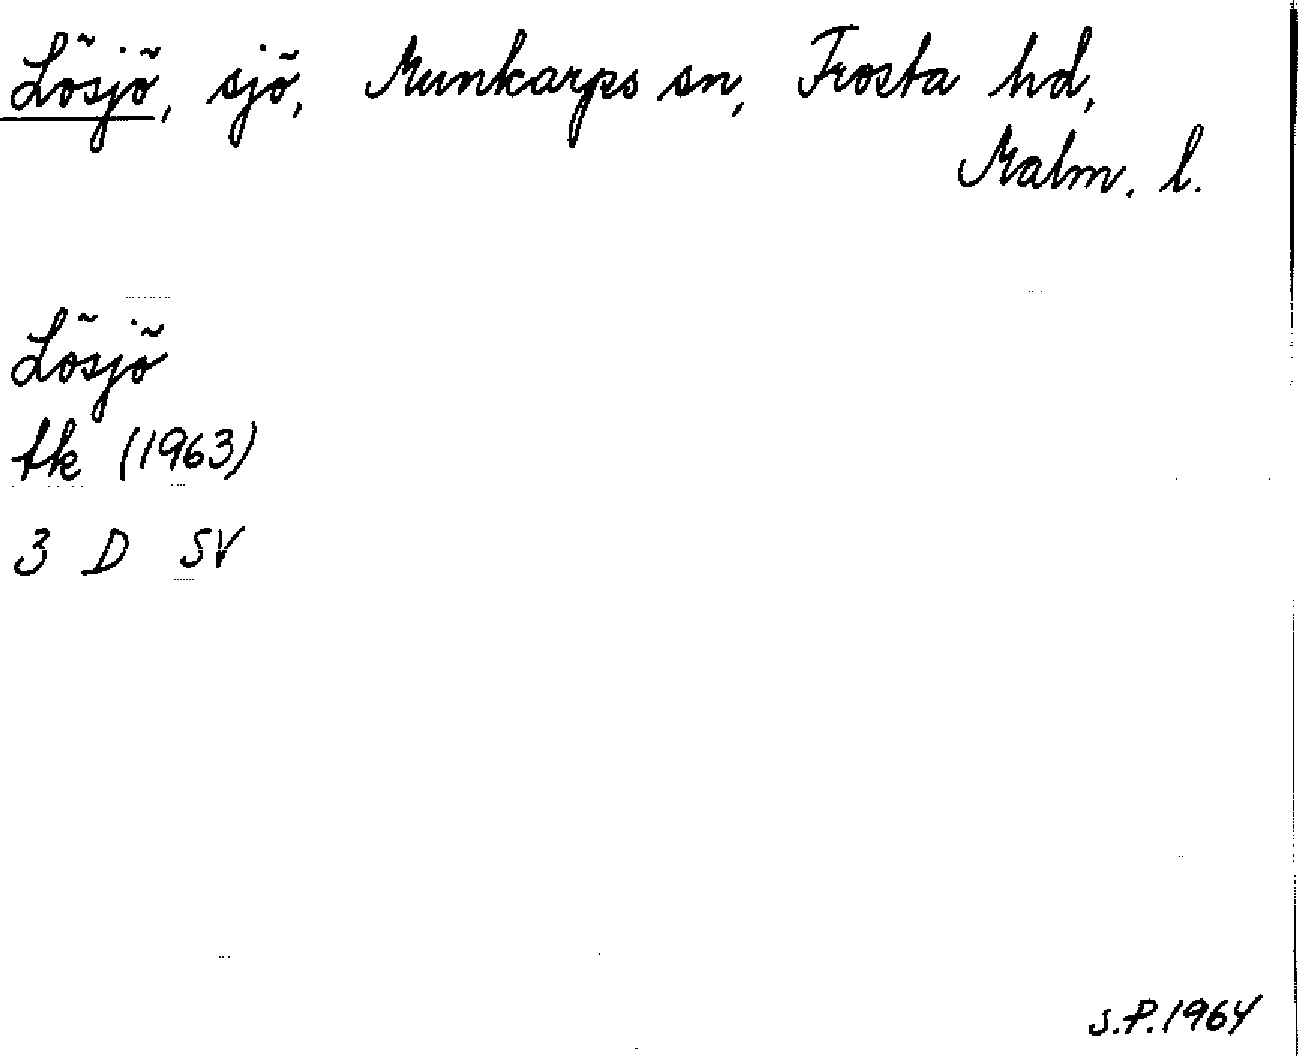 Lösjö, sjö, Munkarps sn, Frosta hd,
Malm. l.
Lösjö
tk (1963)
3 D SV
S.P. 1964